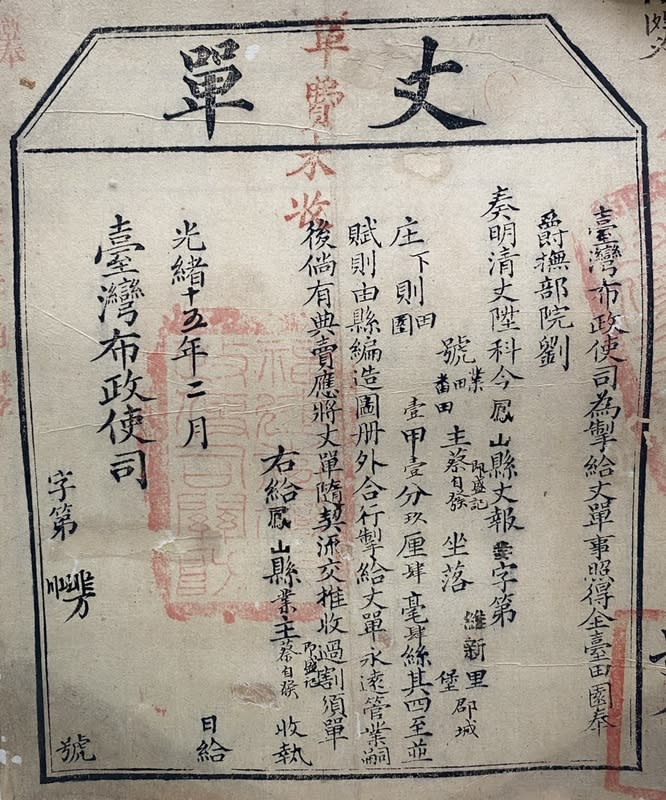 丈單
單費未收
臺灣布政使司為掣給丈單事照得全臺田園奉
爵撫部院劉
奏明清丈陞科今鳳山縣丈報 字第
號 業田 主蔡自發 即盛記 坐落 維新里堡 郡城
庄下則田園 壹甲壹分玖厘肆毫肆絲其四至並
賦則由縣編造圖册外合行掣給丈單永遠管業嗣
後倘有典賣應將丈單隨契流交推收過割須單
右給鳳山縣業主蔡自發 即盛記 收執
光緒十五年二月 日給
臺灣布政使司
字第 號